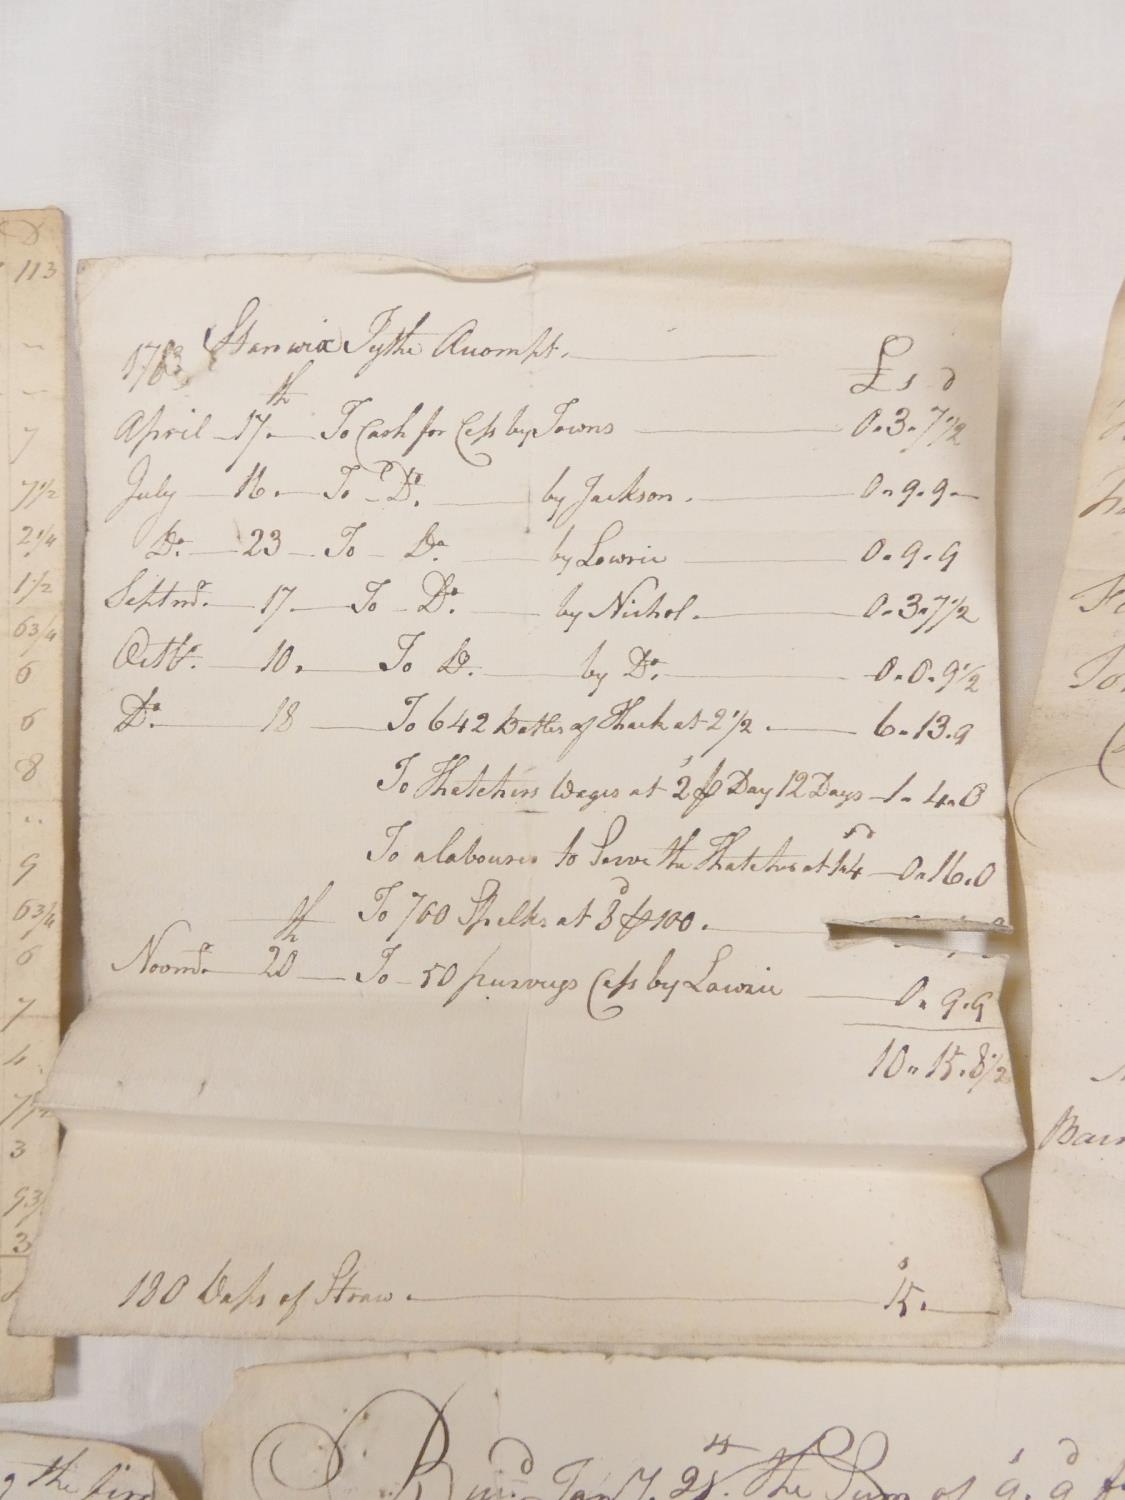 1763 Stanwix Tythe Acompt.
£ s d
April 17th To Cash for Cess by Towns 0-3-7½
July 16. To Do. by Jackson. 0-9-9
Do. 23 To Do. by Lowrie 0-9-9
Septmr. 17 To Do. by Nichol. 0-3-7½
Octbr. 10. To Do. by Do. 0-0-9½
Do. 18 To 642 Battles of Thack at 2½. 6-13-9
To Thatchers Wages at 2s ⅌ Day 12 Days 1-4-0
To a labourer to Serve the Thatcher at 1s-4d 0-16-0
To 700 Spelks at 3d ⅌ 100.
Novmr. 20th To 50 purveys Cess by Lowrie 0-9-9
10-15-8½
180 Waps of Straw. 15s.
113
7
7½
2¼
1½
6¾
6
6
8
9
6¾
6
7
4
7½
3
9¾
3
the
The Sum of 9s. 9d